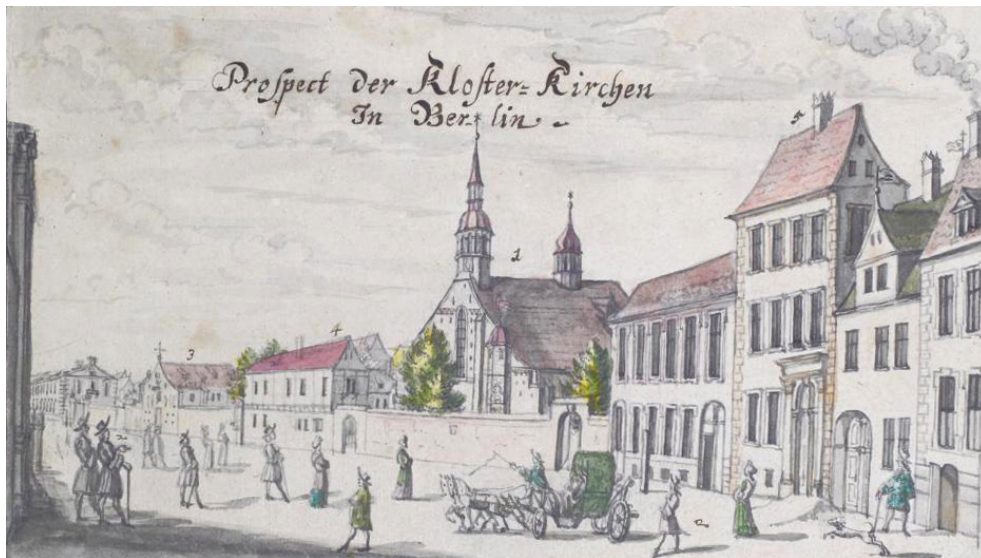 Proſpect der Kloſter=Kirchen
In Berlin.
5
1
4
3
2
2